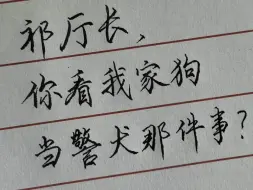 祁厅长，
你看我家狗
当警犬那件事？